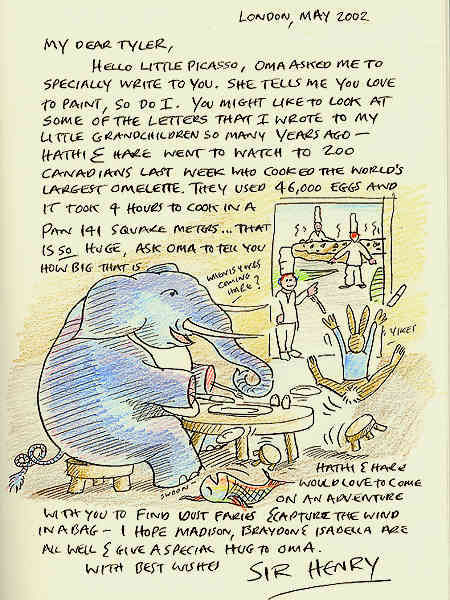 LONDON, MAY 2002
MY DEAR TYLER,
HELLO LITTLE PICASSO, OMA ASKED ME TO
SPECIALLY WRITE TO YOU. SHE TELLS ME YOU LOVE
TO PAINT, SO DO I. YOU MIGHT LIKE TO LOOK AT
SOME OF THE LETTERS THAT I WROTE TO MY
LITTLE GRANDCHILDREN SO MANY YEARS AGO —
HATHI & HARE WENT TO WATCH TO 200
CANADIANS LAST WEEK WHO COOKED THE WORLD'S
LARGEST OMELETTE. THEY USED 46,000 EGGS AND
IT TOOK 4 HOURS TO COOK IN A
PAN 141 SQUARE METERS... THAT
IS SO HUGE, ASK OMA TO TELL YOU
HOW BIG THAT IS
WHEN IS YOURS
COMING
HARE?
YIKES
SWOON
HATHI & HARE
WOULD LOVE TO COME
ON AN ADVENTURE
WITH YOU TO FIND DUST FARIES & CAPTURE THE WIND
IN A BAG — I HOPE MADISON, BRAYDON & ISABELLA ARE
ALL WELL & GIVE A SPECIAL HUG TO OMA.
WITH BEST WISHES
SIR HENRY